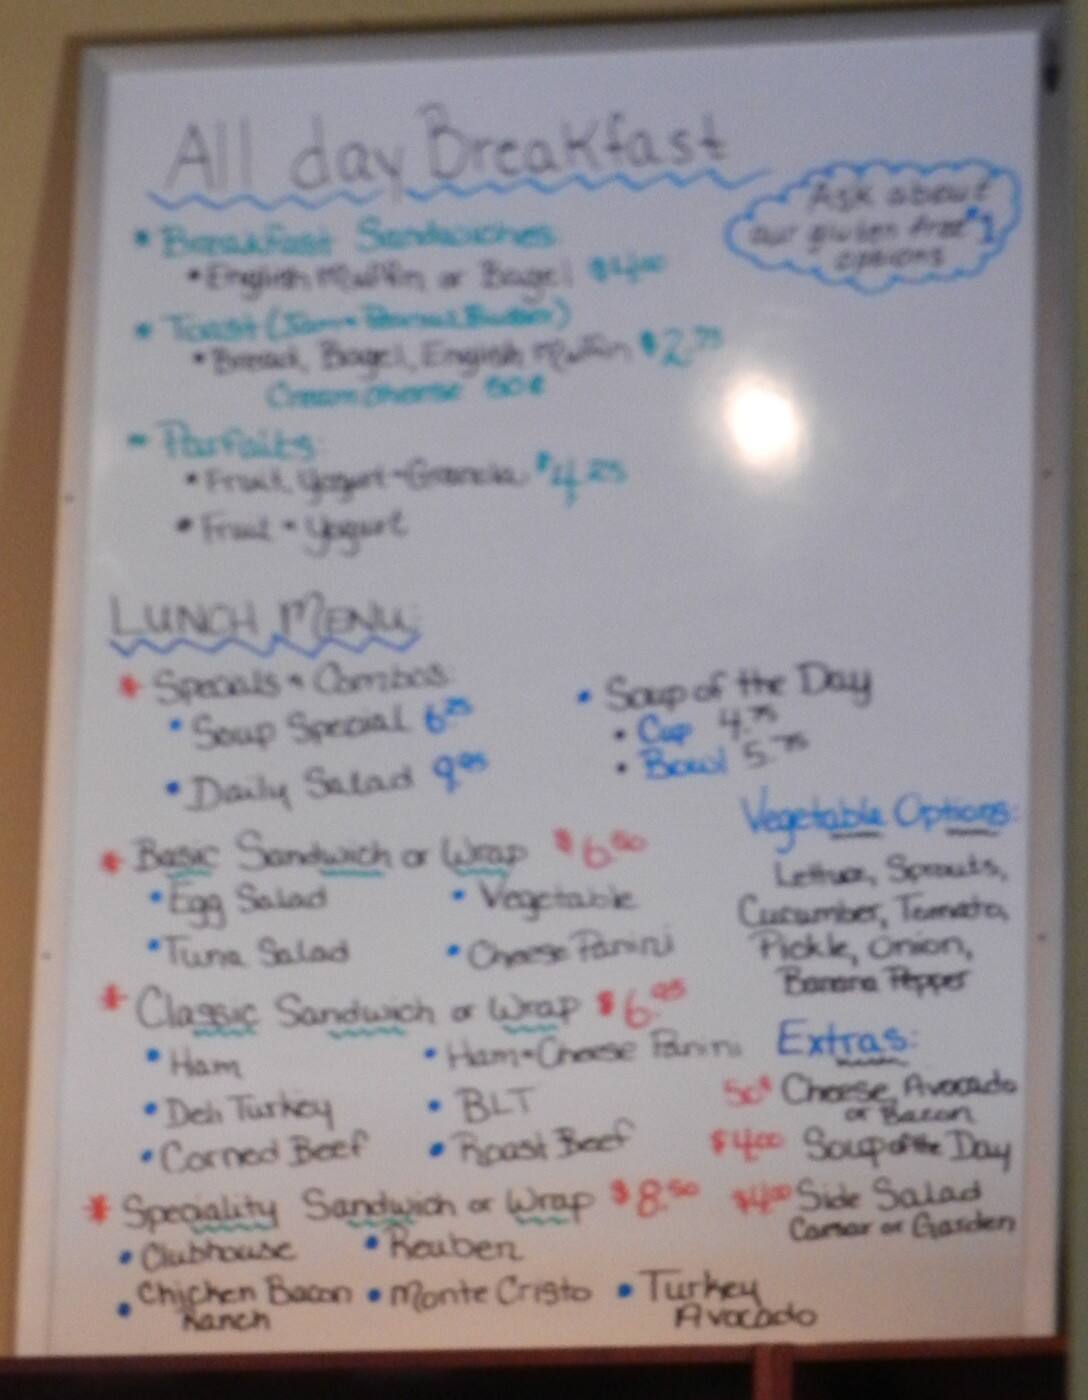 All day Breakfast
Ask about
our gluten free
options
• Breakfast Sandwiches
• English Muffin or Bagel $4.00
• Toast (Jam + Peanut Butter)
• Bread, Bagel, English Muffin $2.75
Cream cheese 50¢
- Parfaits:
• Fruit, Yogurt + Granola $4.25
• Fruit + Yogurt
LUNCH MENU:
* Specials + Combos:
• Soup Special 6.25
• Daily Salad 9.95
• Soup of the Day
• Cup 4.75
• Bowl 5.75
* Basic Sandwich or Wrap $6.50
• Egg Salad • Vegetable
• Tuna Salad • Cheese Panini
Vegetable Options:
Lettuce, Sprouts,
Cucumber, Tomato,
Pickle, Onion,
Banana Pepper
* Classic Sandwich or Wrap $6.95
• Ham • Ham + Cheese Panini
• Deli Turkey • BLT
• Corned Beef • Roast Beef
Extras:
50¢ Cheese, Avocado
or Bacon
$4.00 Soup of the Day
$4.00 Side Salad
Caesar or Garden
* Speciality Sandwich or Wrap $8.50
• Clubhouse • Reuben
• Chicken Bacon • Monte Cristo • Turkey
Ranch Avocado